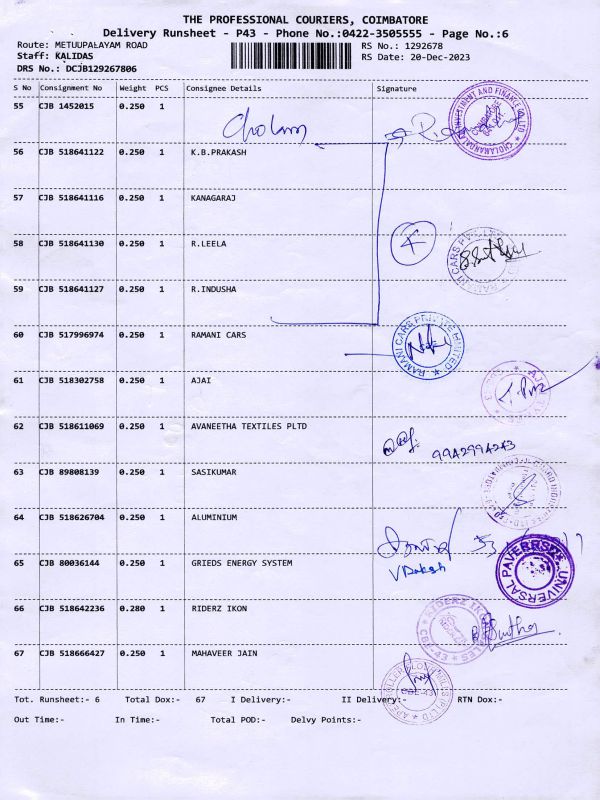 THE PROFESSIONAL COURIERS, COIMBATORE
Delivery Runsheet - P43 - Phone No.:0422-3505555 - Page No.:6
Route: METUUPALAYAM ROAD
RS No.: 1292678
Staff: KALIDAS
RS Date: 20-Dec-2023
DRS No.: DCJB129267806
S No Consignment No Weight PCS Consignee Details Signature
55 CJB 1452015 0.250 1
Cholam
56 CJB 518641122 0.250 1 K.B.PRAKASH
57 CJB 518641116 0.250 1 KANAGARAJ
4
58 CJB 518641130 0.250 1 R.LEELA
59 CJB 518641127 0.250 1 R.INDUSHA
60 CJB 517996974 0.250 1 RAMANI CARS
RAMANI CARS PRIVATE LIMITED
61 CJB 518302758 0.250 1 AJAI
62 CJB 518611069 0.250 1 AVANEETHA TEXTILES PLTD
9942994243
63 CJB 89808139 0.250 1 SASIKUMAR
64 CJB 518626704 0.250 1 ALUMINIUM
65 CJB 80036144 0.250 1 GRIEDS ENERGY SYSTEM
V Daksh
UNIVERSAL PAVERRSD
66 CJB 518642236 0.280 1 RIDERZ IKON
RIDERZ IKON
CBE-43
67 CJB 518666427 0.250 1 MAHAVEER JAIN
CBE-43
Tot. Runsheet:- 6 Total Dox:- 67 I Delivery:- II Delivery:- RTN Dox:-
Out Time:- In Time:- Total POD:- Delvy Points:-